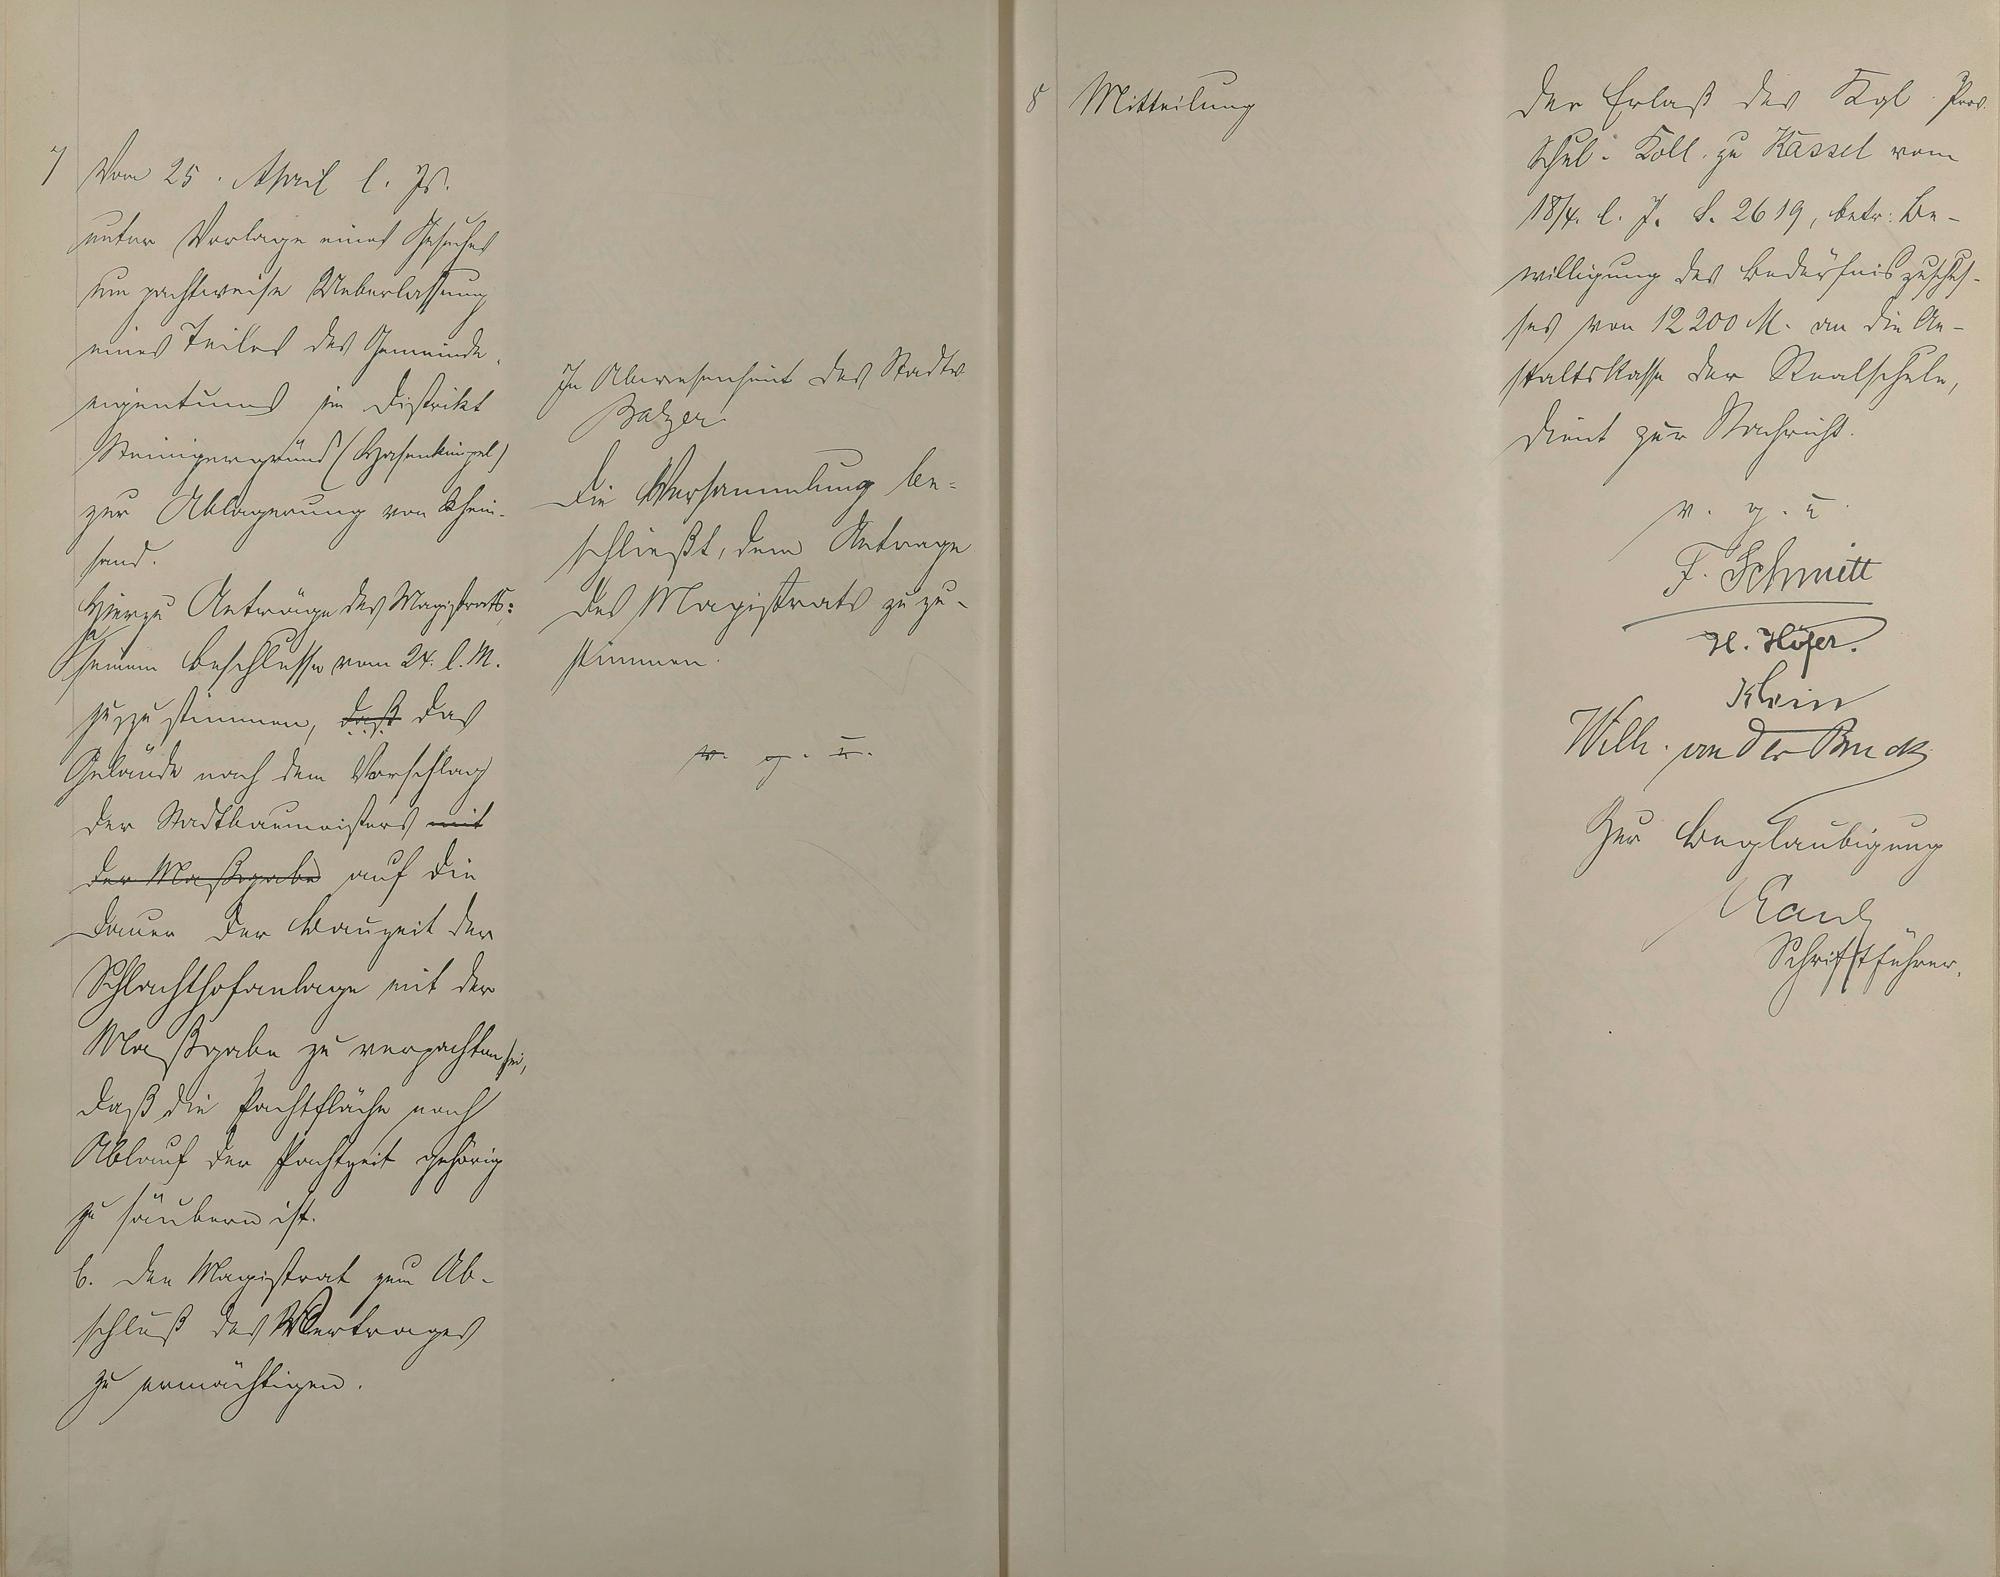 7 Vom 25. April l. Js.
unter Vorlage eines Gesuches
um pachtweise Ueberlassung
eines Teiles des Gemeinde-
eigentums im Distrikt
Steinigergrund (Hasenkümpel)
zur Ablagerung von Rhein-
sand.
Hierzu Anträge des Magistrats:
a seinem Beschlusse vom 24. l. M.
zuzustimmen, daß das
Gelände nach dem Vorschlag
der Stadtbaumeisters mit
der Maßgabe auf die
Dauer der Bauzeit der
Schlachthofanlage mit der
Maßgabe zu verpachten sei,
daß die Pachtfläche nach
Ablauf der Pachtzeit gehörig
zu säubern ist.
b. den Magistrat zum Ab-
schluß des Vertrages
zu ermächtigen.
In Abwesenheit des Stadtv
Balzer
Die Versammlung be-
schließt, dem Antrage
des Magistrats zuzu-
stimmen.
v. g. u.
8 Mitteilung
Der Erlaß des Kgl Prov.
Schul- Koll. zu Kassel vom
18/4. l. J. S. 2619, betr: Be-
willigung des Bedürfniszuschus-
ses von 12200 M. an die An-
staltskasse der Realschule,
dient zur Nachricht.
v. g. u.
F. Schmitt
H. Höfer.
Klein
Wilh. von der Bruck
Zur Beglaubigung
Schriftführer.